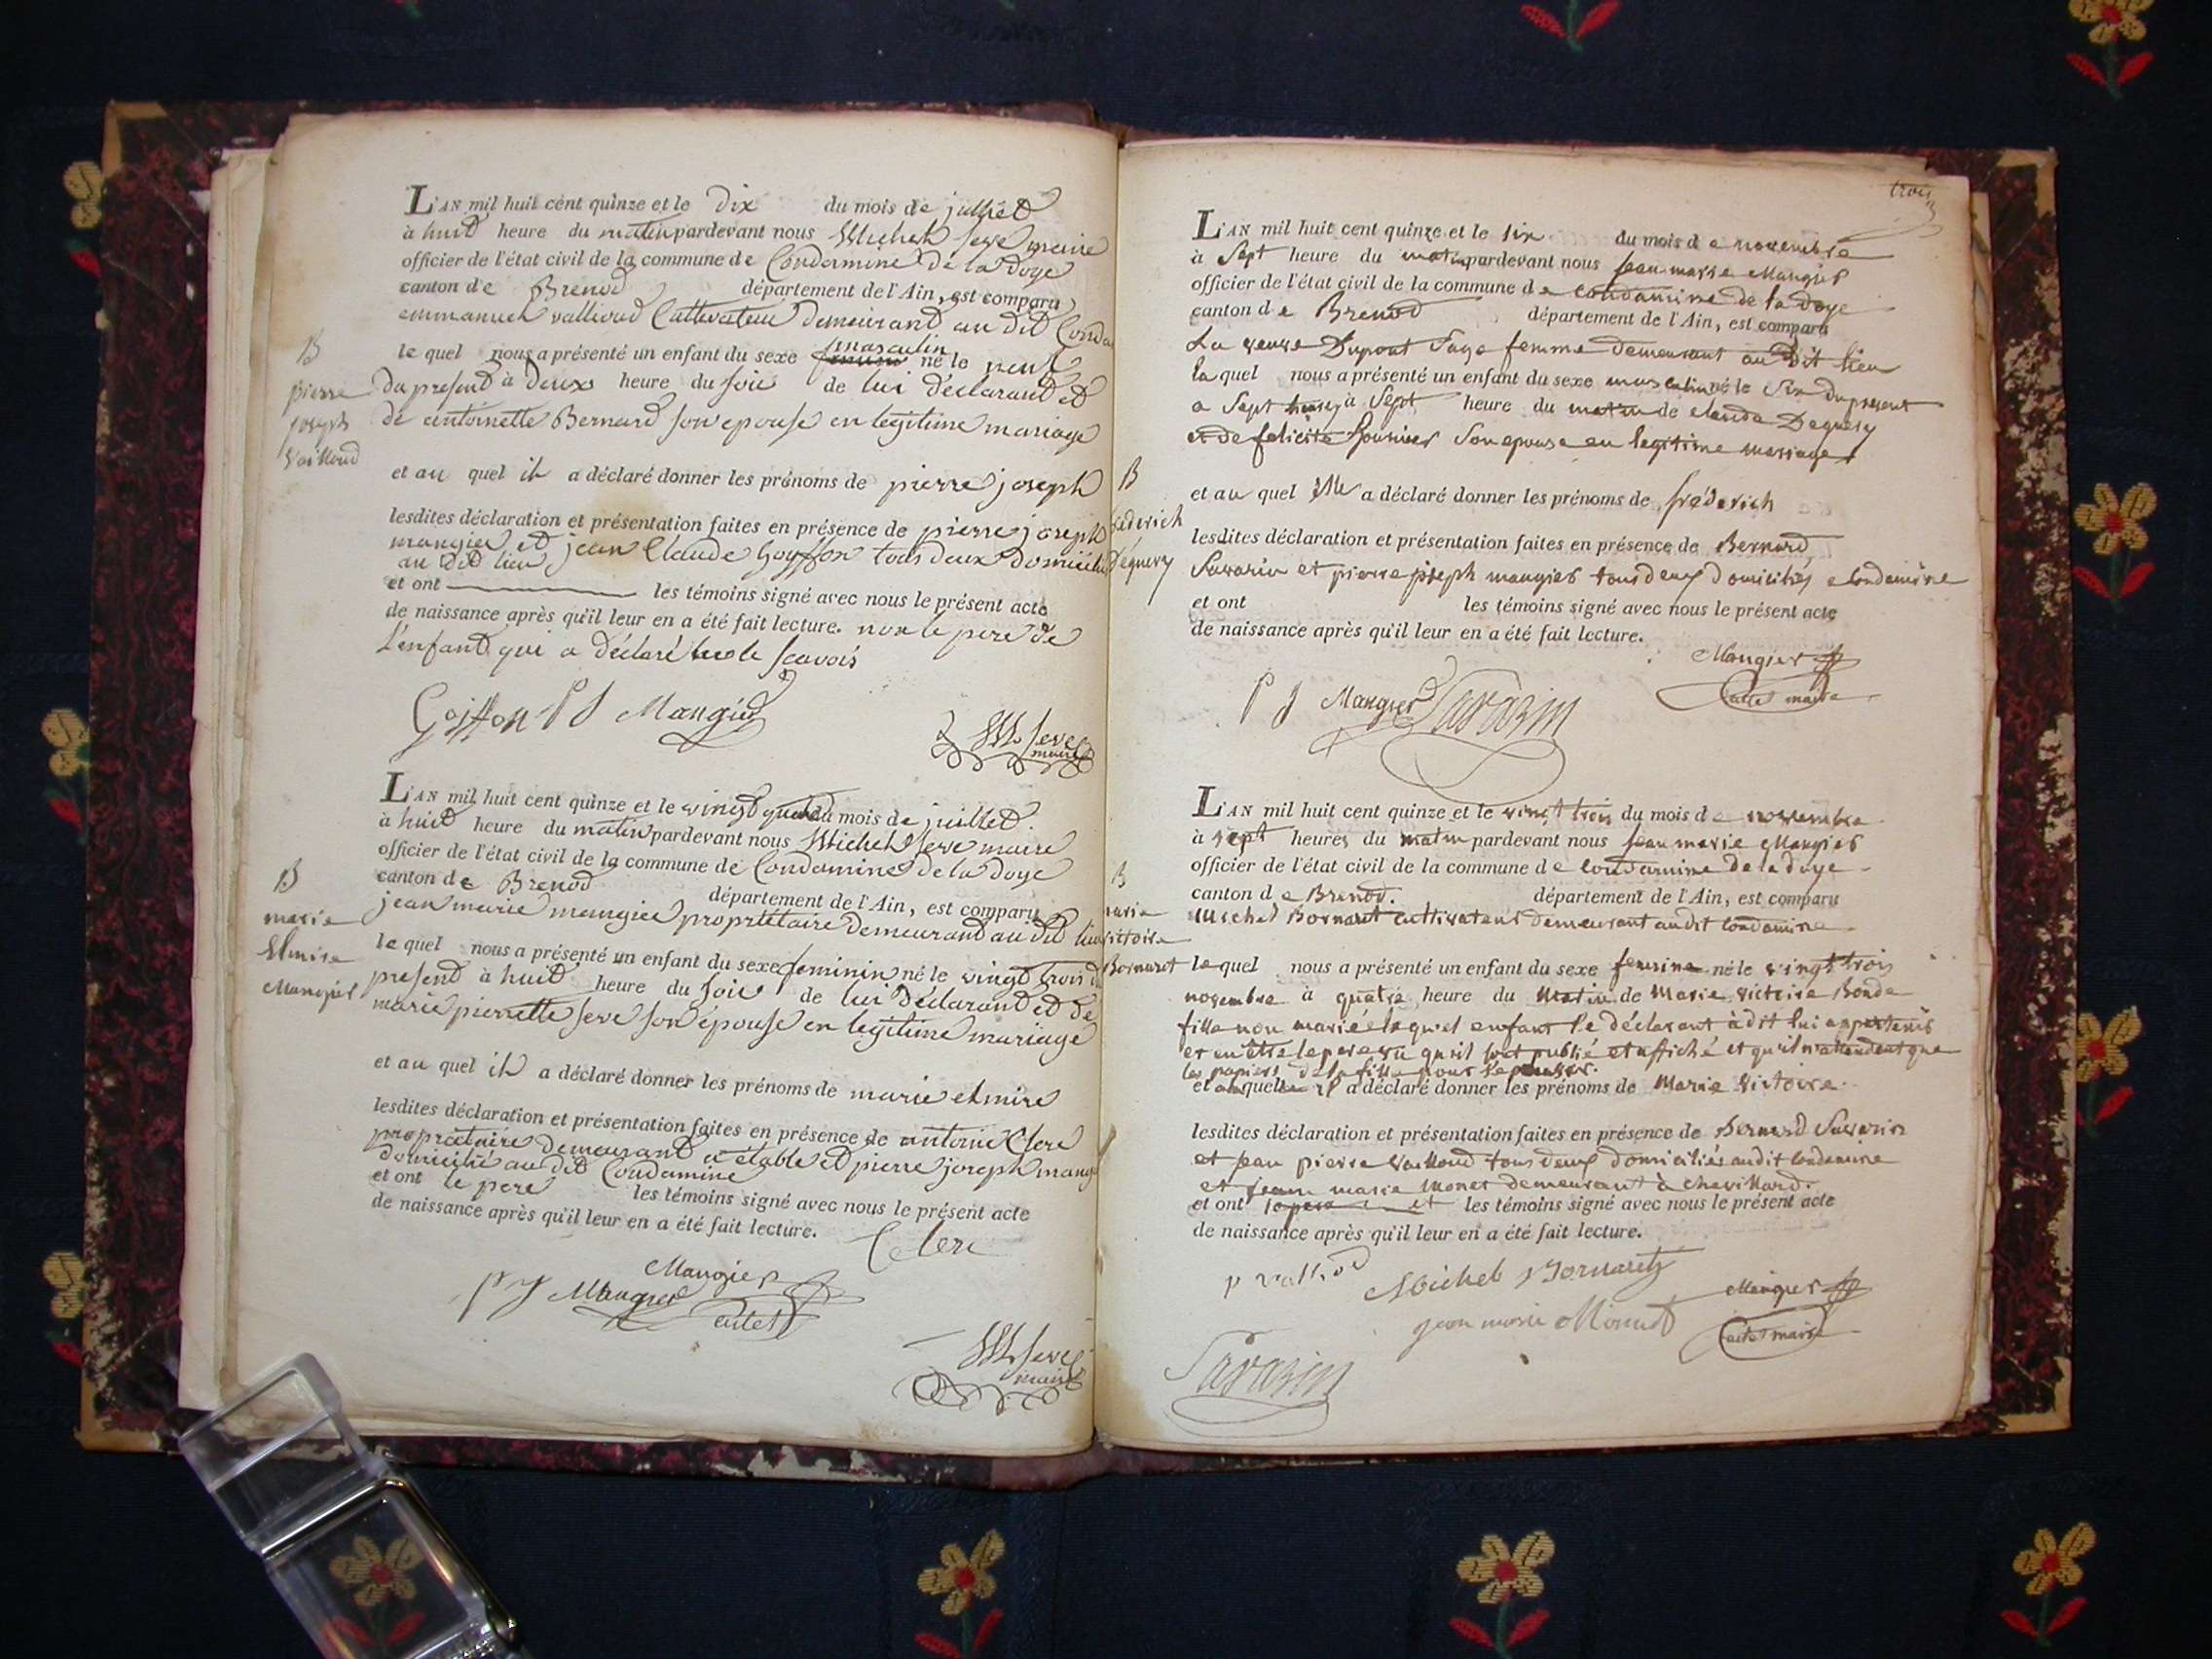 L'AN mil huit cent quinze et le dix du mois de julliet
à huit heure du matin pardevant nous Michel seve maire
officier de l'état civil de la commune de Condamine de la Doye
canton de Brenod département de l'Ain, est comparu
emmanuel vallioud Cultivateur demeurant au dit Conda
B
pierre
joseph
Vailloud
le quel nous a présenté un enfant du sexe masculin né le neuf
du present à deux heure du soir de lui déclarant et
de antoinette Bernard son epouse en legitime mariage
et au quel il a déclaré donner les prénoms de pierre joseph
lesdites déclaration et présentation faites en présence de pierre joseph
mangier et jean Claude Goyffon tous deux domicilié
au dit lieu
et ont les témoins signé avec nous le présent acte
de naissance après qu'il leur en a été fait lecture. non le pere de
l'enfant qui a déclaré ne le scavoir
Goiffon P J Mangier
M. seve
maire
L'AN mil huit cent quinze et le vingt quatre du mois de juillet
à huit heure du matin pardevant nous Michel seve maire
officier de l'état civil de la commune de Condamine de la Doye
canton de Brenod département de l'Ain, est comparu
jean marie mangier propriétaire demeurand au dit lieu
B
marie
Elmire
Mangier
le quel nous a présenté un enfant du sexe feminin né le vingt trois du
present à huit heure du soir de lui déclarand et de
marie pierrette seve son épouse en legitime mariage
et au quel il a déclaré donner les prénoms de marie elmire
lesdites déclaration et présentation faites en présence de antoine Clerc
propriétaire demeurant a étable et pierre joseph mang
domicilié au dit Condamine
et ont le pere les témoins signé avec nous le présent acte
de naissance après qu'il leur en a été fait lecture.
Clerc
Mangier
P J Mangier
M. seve
maire
trois
L'AN mil huit cent quinze et le six du mois de novembre
à Sept heure du matin pardevant nous jean marie Mangier
officier de l'état civil de la commune de Condamine de la Doye
canton de Brenod département de l'Ain, est comparu
La veuve Dupont Sage femme demeurant au Dit lieu
la quel nous a présenté un enfant du sexe masculin né le Six du present
a Sept à Sept heure du matin de claude Dequery
et de felicité son epouse en legitime mariage
B
frederich
Dequery
et au quel elle a déclaré donner les prénoms de fréderich
lesdites déclaration et présentation faites en présence de Bernard
Savarin et pierre joseph mangier tous deux domiciliés a Condamine
et ont les témoins signé avec nous le présent acte
de naissance après qu'il leur en a été fait lecture.
Mangier
P J Mangier Savarin
L'AN mil huit cent quinze et le vingt trois du mois de novembre
à sept heures du matin pardevant nous jean marie Mangier
officier de l'état civil de la commune de Condamine de la doye
canton de Brenod. département de l'Ain, est comparu
Michel Bornaret cultivateur demeurant audit Condamine
B
marie
victoire
Bornaret
le quel nous a présenté un enfant du sexe feminin né le vingt trois
novembre à quatre heure du Matin de Marie victoire Bonde
fille non mariée lequel enfant le déclarant à dit lui appartenir
et en être le pere vu qu'il sont publié et affiché et qu'il n'attendent que
les papiers de la fille pour l'epouser.
et auquelle il a déclaré donner les prénoms de Marie Victoire
lesdites déclaration et présentation faites en présence de Bernard Savarin
et jean pierre Vailloud tous deux domiciliés audit Condamine
et jean marie Monet demeurant à chevillard.
et ont le pere et les témoins signé avec nous le présent acte
de naissance après qu'il leur en a été fait lecture.
p valliod Michel Bornaret Mangier
jean marie Monet
Savarin